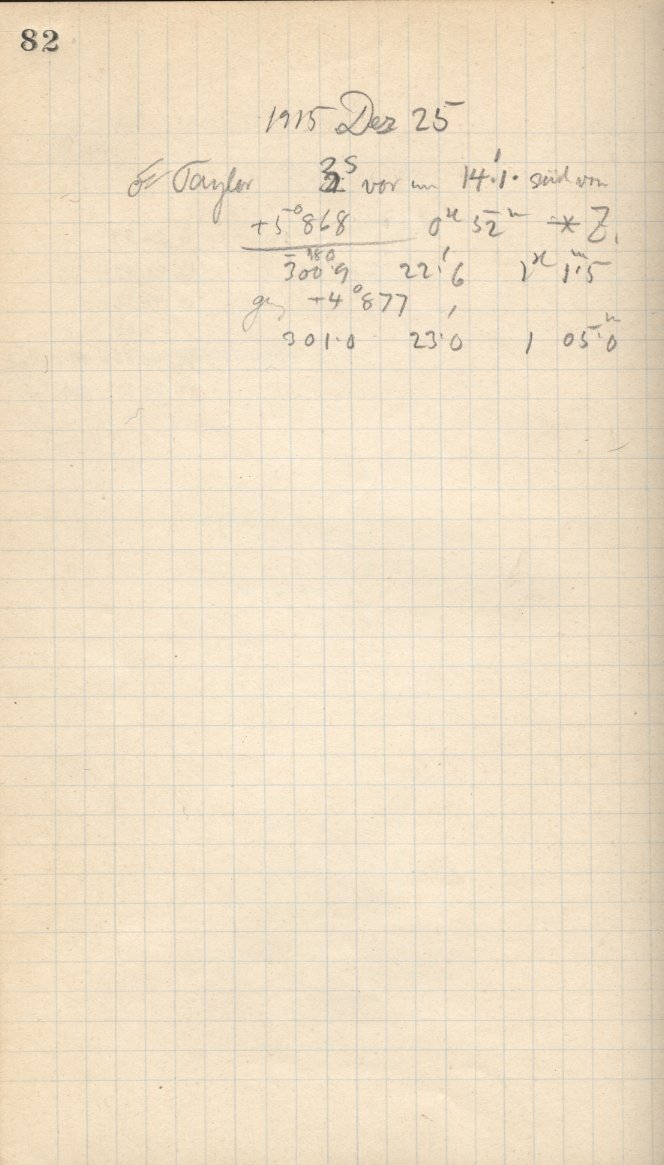 82
1915 Dez 25
Taylor 3ˢ vor um 14'.1. süd von
+5°868 0ʰ 52ᵐ * Z₁
300.9 22'.6 1ʰ 1.5ᵐ
+4°877
301.0 23'.0 1 05.0ᵐ